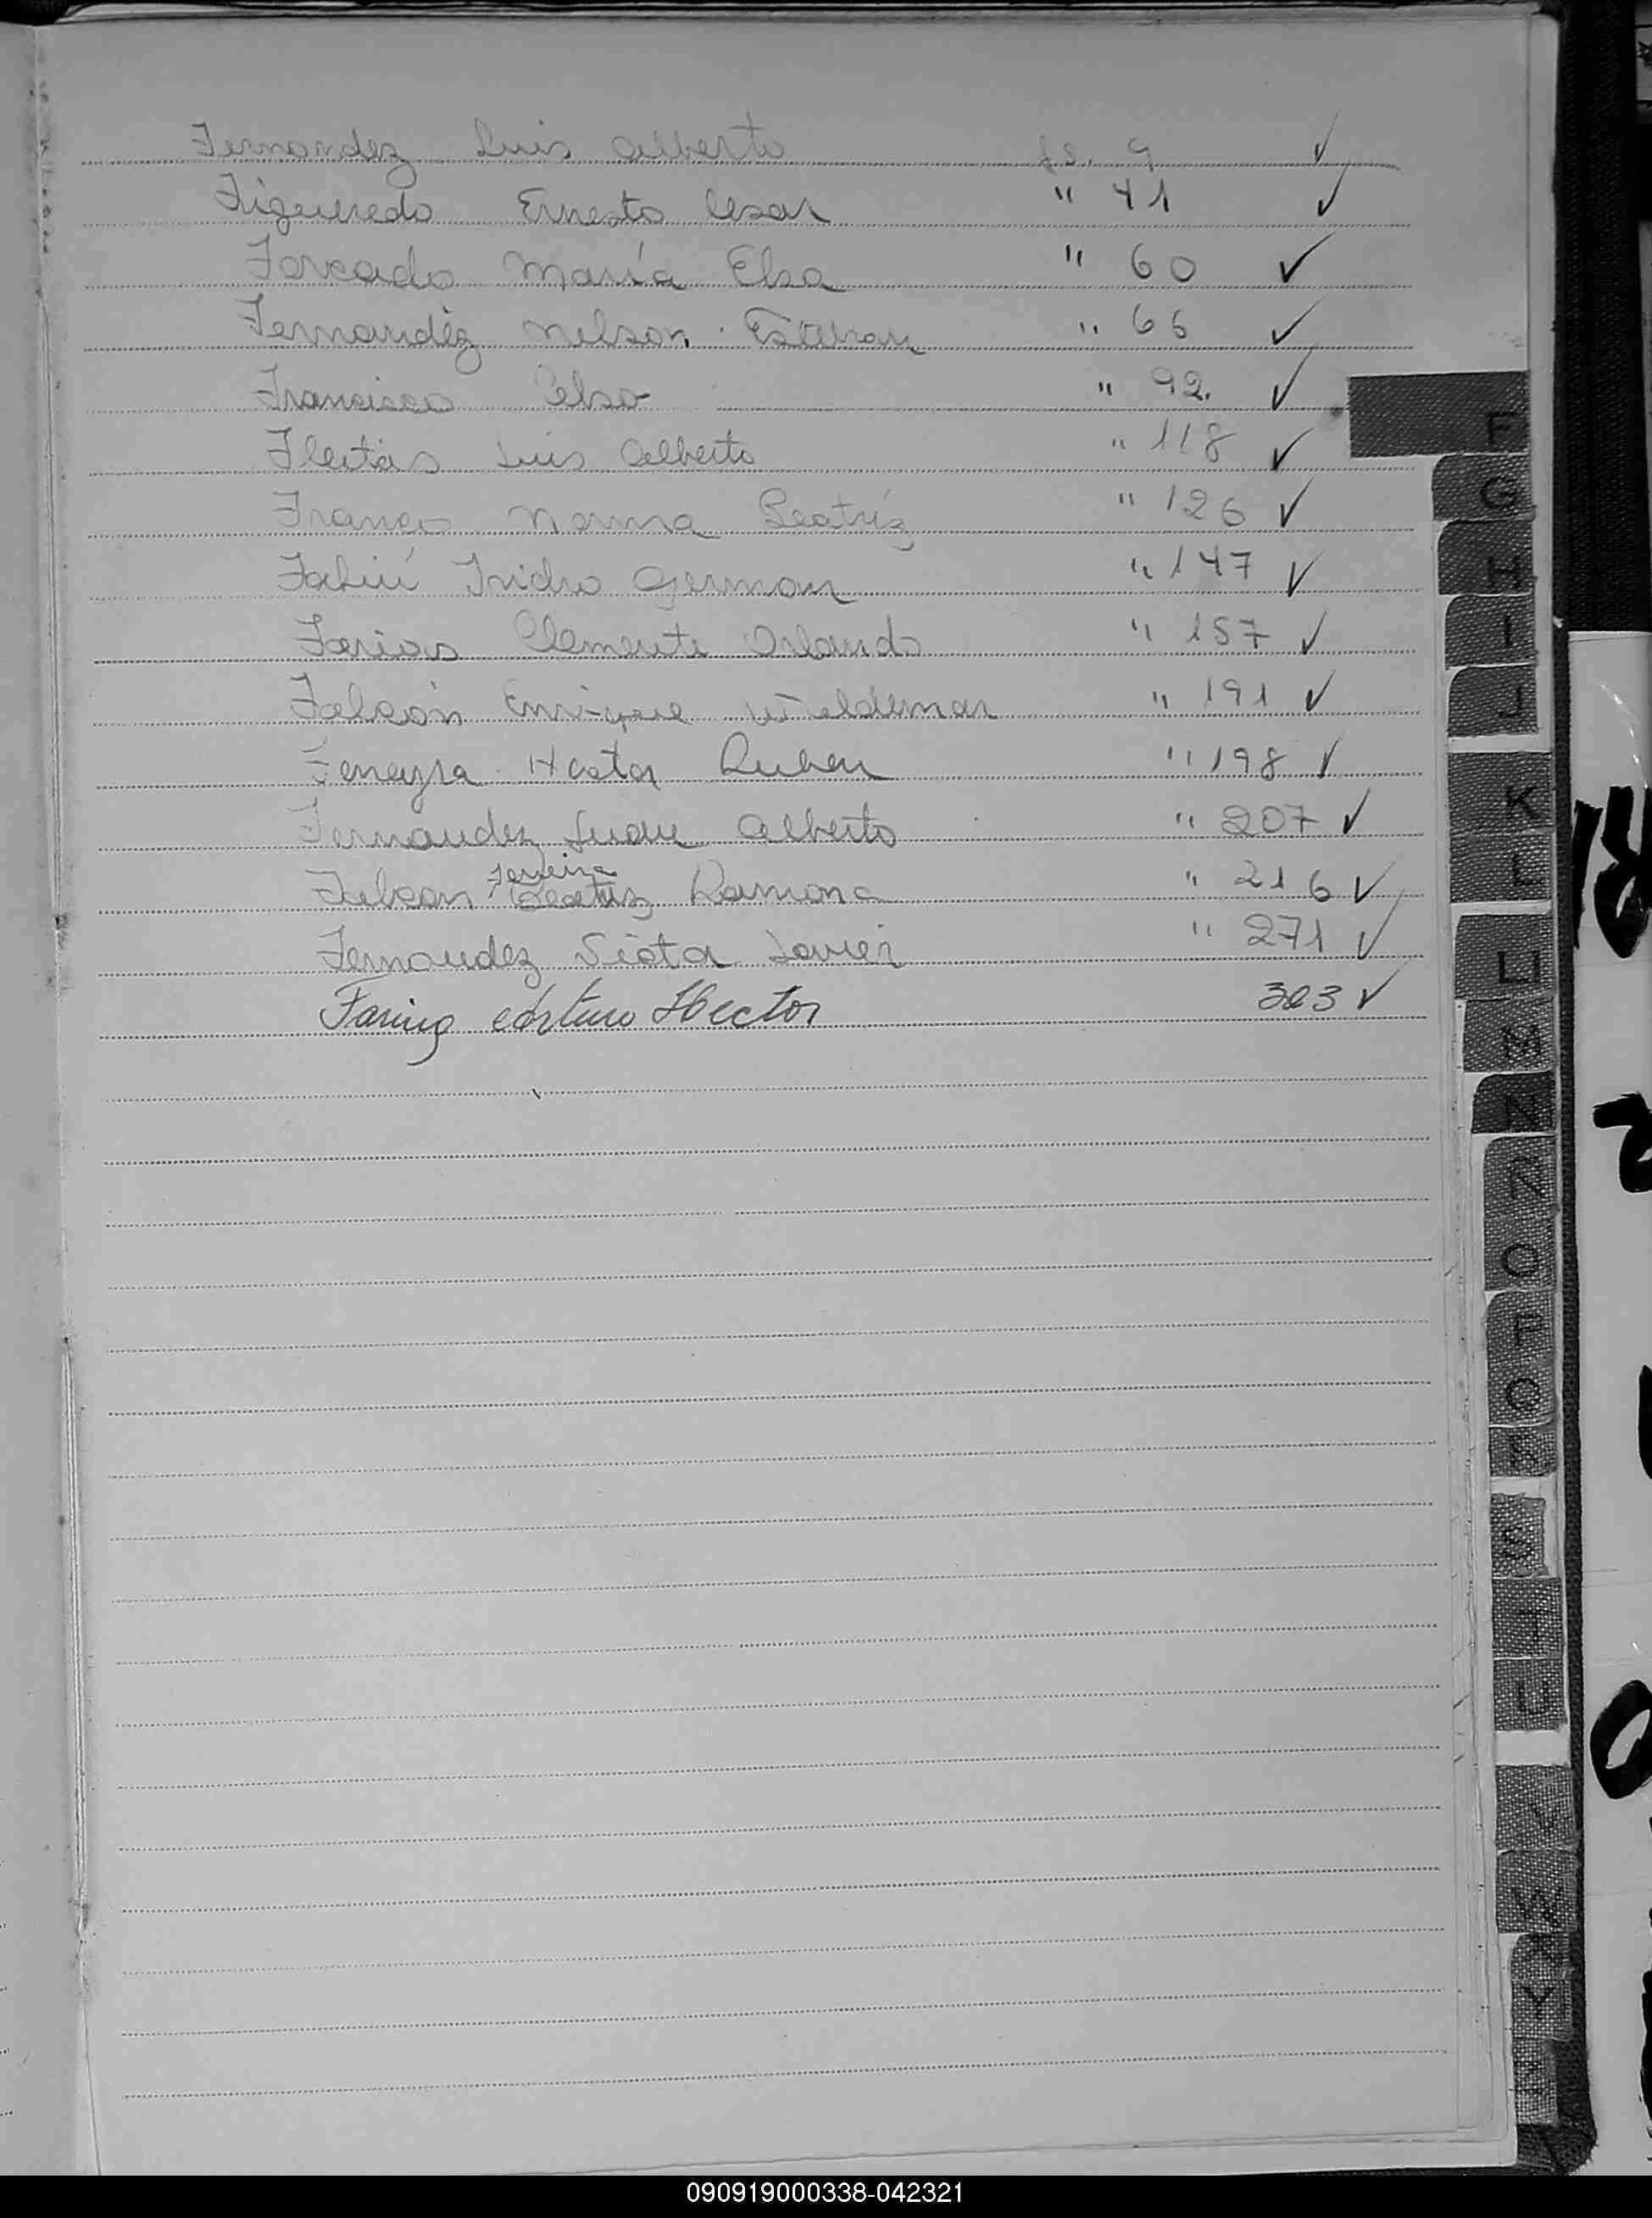 Fernandez Luis Alberto fs. 9 ✓
Figueredo Ernesto Cesar " 41 ✓
Forcado María Elsa " 60 ✓
Fernandez Nelson Esteban " 66 ✓
Francisco Celso " 92. ✓
Fleitas Luis Alberto " 118 ✓
Franco Norma Beatríz " 126 ✓
Isidro German " 147 ✓
Farias Clemente Orlando " 157 ✓
Falcón Enrique Waldemar " 191 ✓
Ferreyra Hector Ruben " 198 ✓
Fernandez Juan Alberto " 207 ✓
Ferreira
Falcon Beatriz Ramona " 216 ✓
Fernandez Javier " 271 ✓
Arturo Hector 303 ✓
F
G
H
I
J
K
L
LL
M
N
Ñ
O
P
Q
R
S
T
U
V
W
Y
090919000338-042321